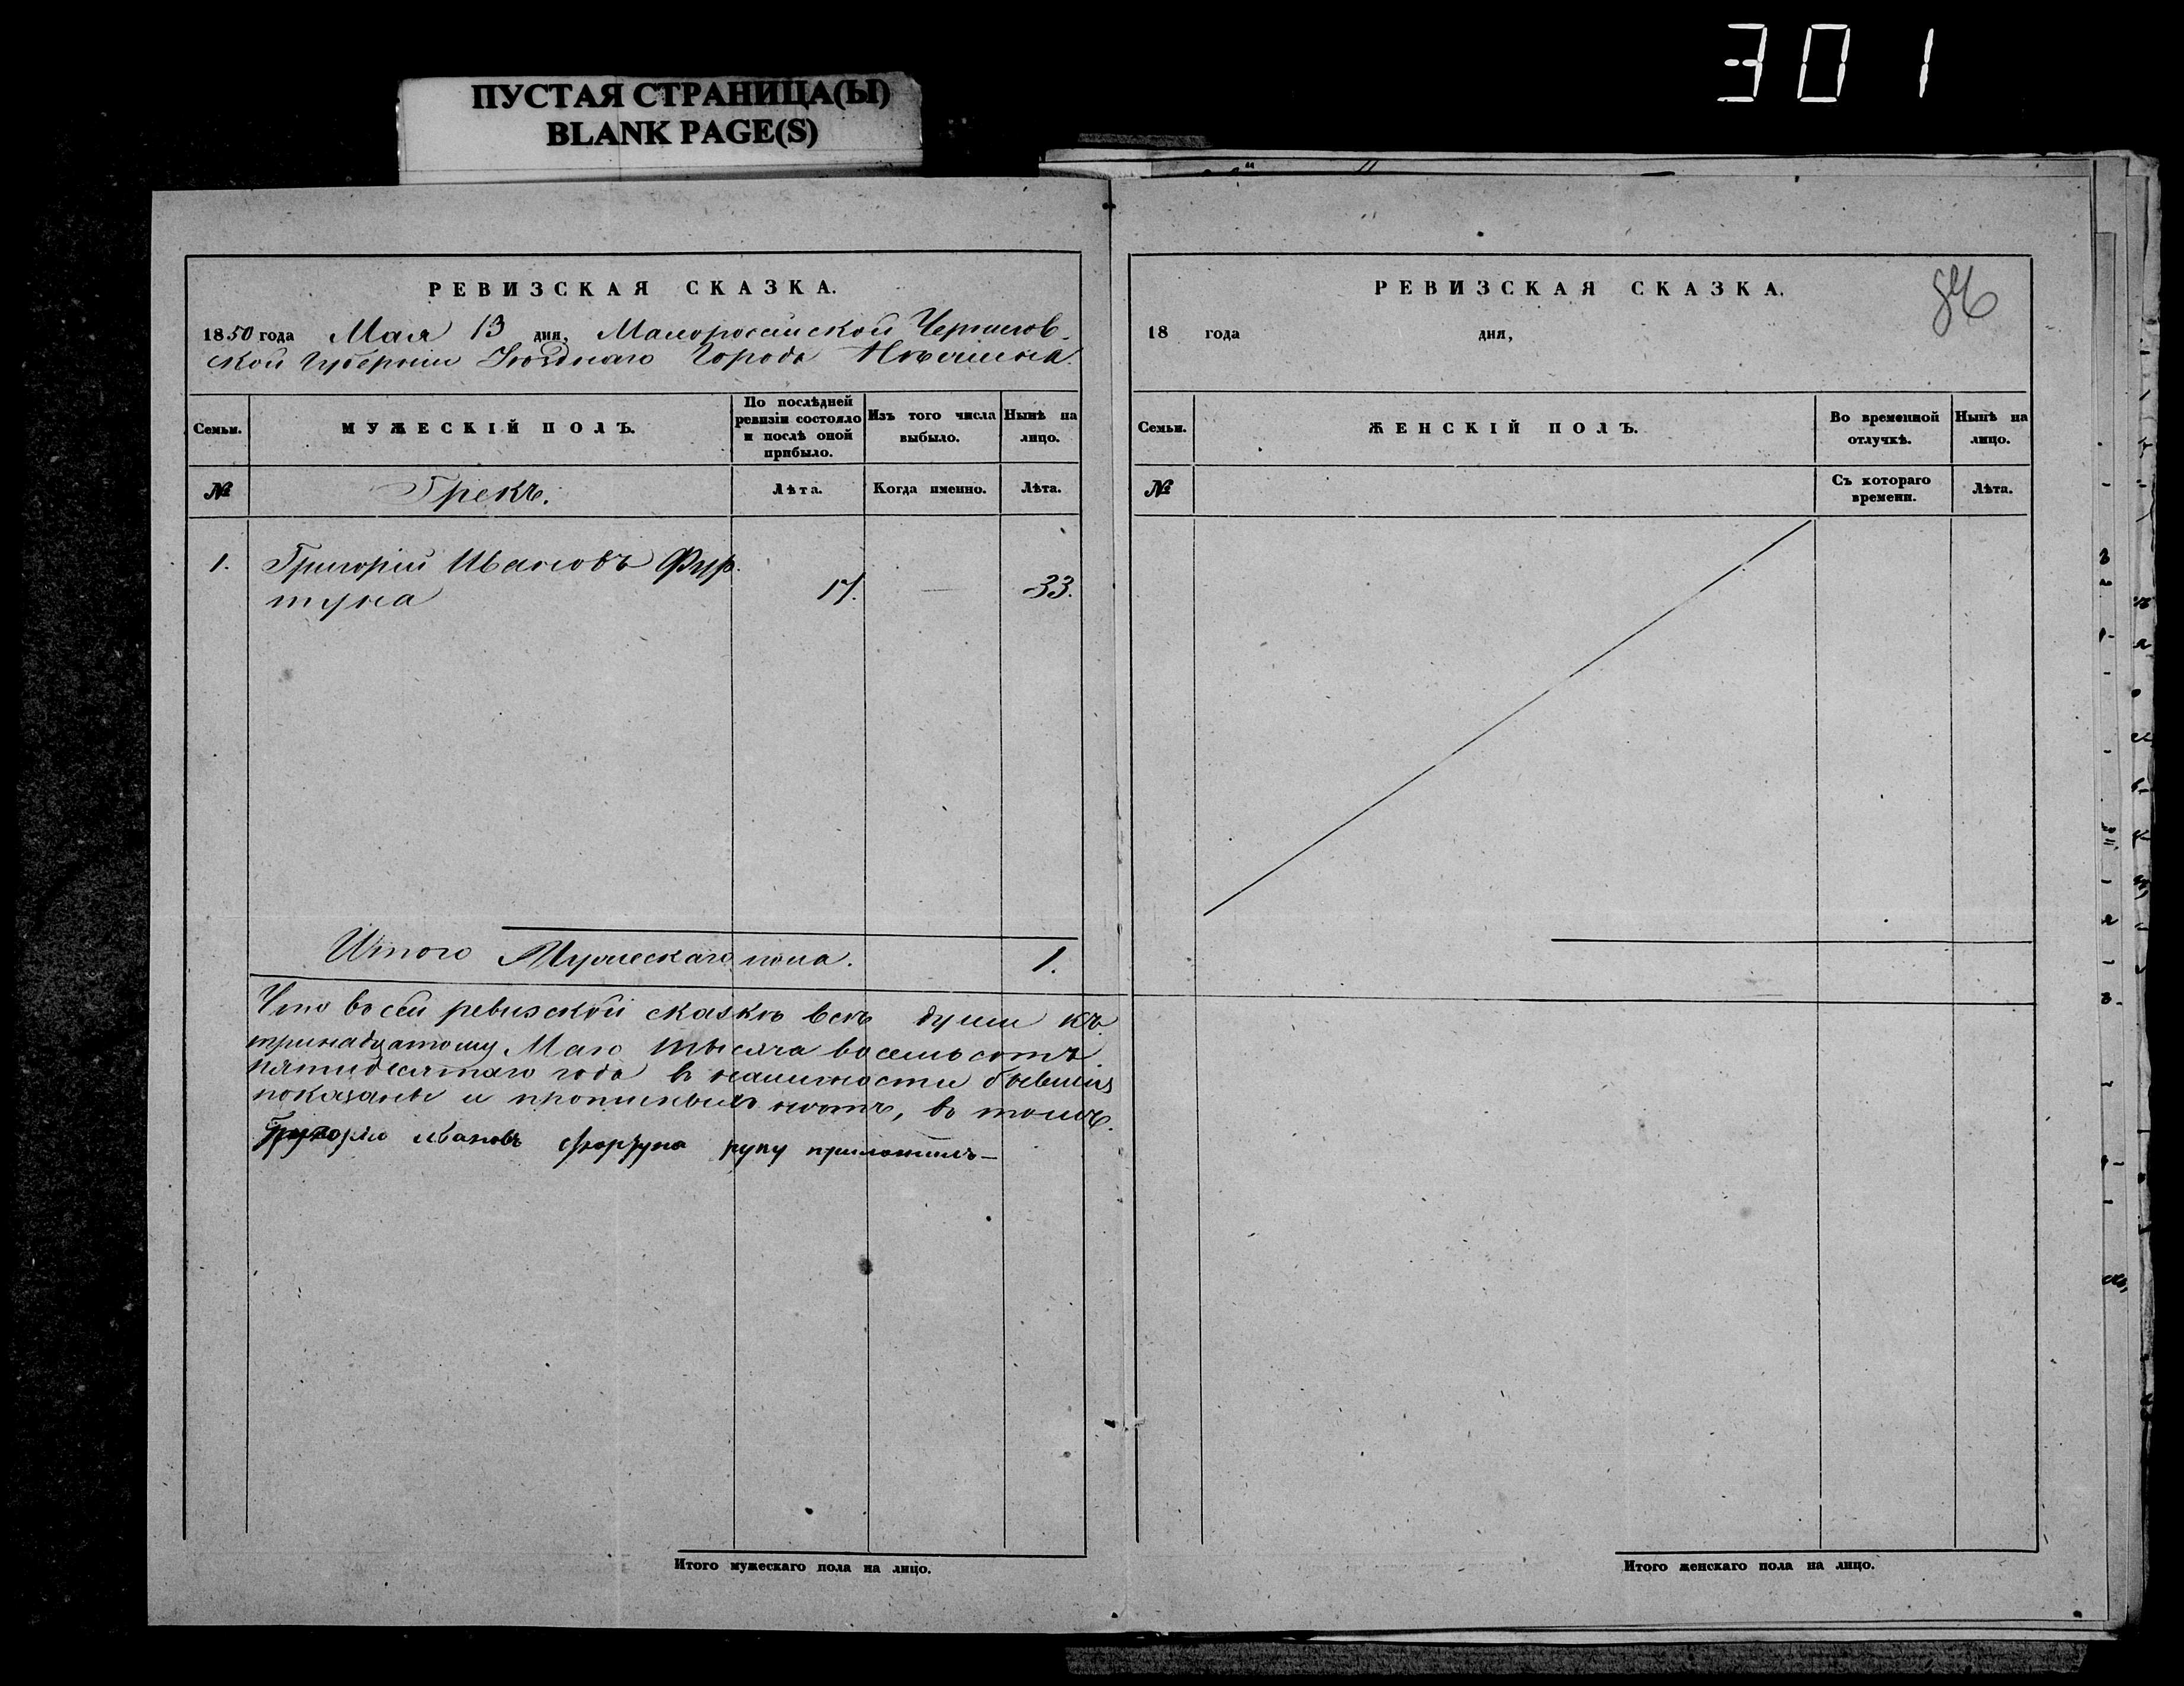 301
ПУСТАЯ СТРАНИЦА(Ы)
BLANK PAGE(S)
РЕВИЗСКАЯ СКАЗКА.
1850 года Мая 13 дня, Малороссійской Чернигов-
ской Губерніи Уѣзднаго Города Нѣжина.
Семьи.
МУЖЕСКІЙ ПОЛЪ.
По послѣдней
ревизіи состояло
и послѣ оной
прибыло.
Изъ того числа
выбыло.
Нынѣ на
лицо.
№
Грекъ.
Лѣта.
Когда именно.
Лѣта.
1. Григорій Ивановъ Фур-
туна 17. — 33.
Итого Мужескаго пола. 1.
Что въ сей ревизской сказкѣ всѣ души къ
тринадцатому Маю тысяча восемьсотъ
пятидесятаго года в наличности бывшія
показаны и прописныхъ нѣтъ, въ томъ
Григорій ивановъ фортуна руку приложилъ—
Итого мужескаго пола на лицо.
РЕВИЗСКАЯ СКАЗКА.
18 года дня,
Семьи.
ЖЕНСКІЙ ПОЛЪ.
Во временной
отлучкѣ.
Нынѣ на
лицо.
№
Съ котораго
времени.
Лѣта.
Итого женскаго пола на лицо.